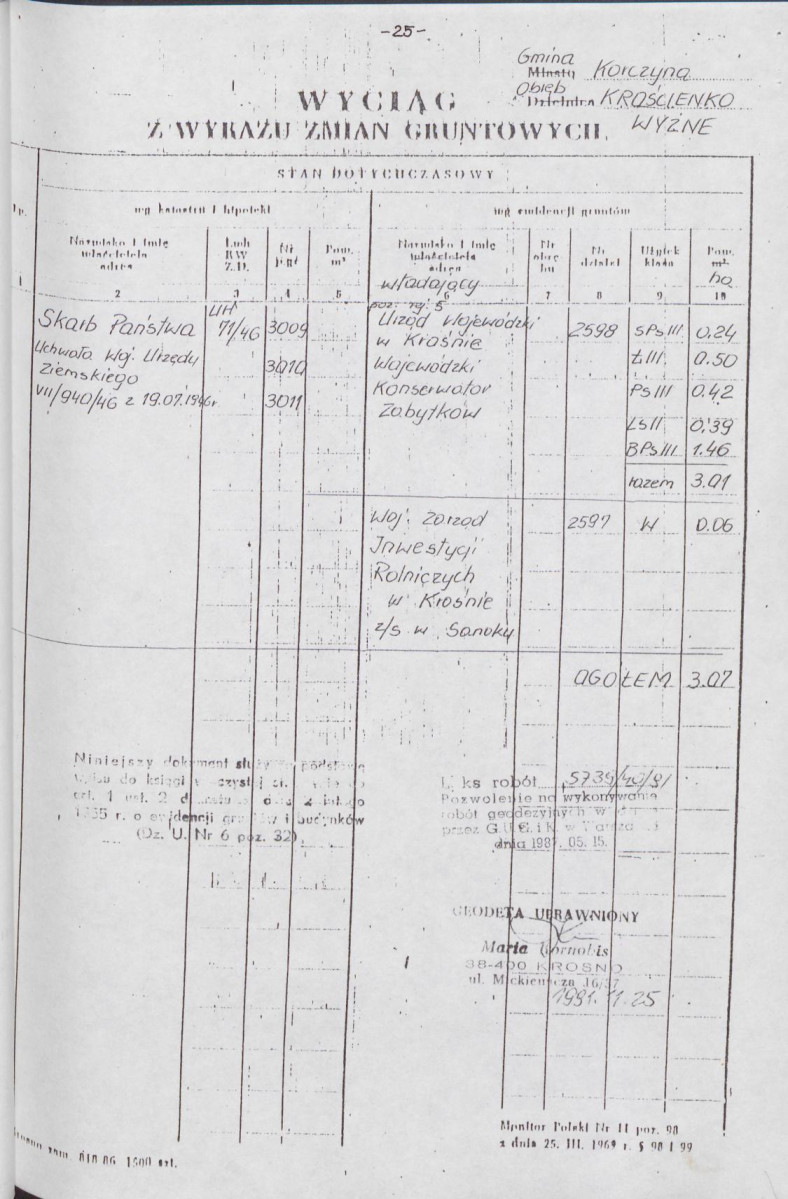 -25-
Gmina
Miasto Korczyna
Obręb
Dzielnica KROŚCIENKO
WYŻNE
WYCIĄG
Z WYKAZU ZMIAN GRUNTOWYCH
STAN DOTYCHCZASOWY
Lp.
wg katastru i hipoteki
wg ewidencji gruntów
Nazwisko i imię właściciela adres
Lwh KW Z.D.
Nr pgr
Pow. m²
Nazwisko i imię właściciela adres
władający
poz. rej. 5
Nr obrębu
Nr działki
Użytek klasa
Pow. m²
ha
1 2 3 4 5 6 7 8 9 10
Skarb Państwa
LWH 71/46 3009
Uchwała Woj. Urzędu
Ziemskiego 3010
VII/940/46 z 19.07.1946r 3011
Urząd Wojewódzki 2598 SPs III 0.24
w Krośnie
Wojewódzki Ł III 0.50
Konserwator Ps III 0.42
Zabytków
Ls II 0,39
BPs III 1.46
razem 3.01
Woj. Zarząd 2597 W 0.06
Inwestycji
Rolniczych
w Krośnie
z/s w Sanoku
OGOŁEM 3.07
Niniejszy dokument służy podstawą
wpisu do księgi wieczystej
art. 1 ust. 2 dekretu z dnia 2 lutego
1955 r. o ewidencji gruntów i budynków
(Dz. U. Nr 6 poz. 32)
L. ks robót 5739/40/91
Pozwolenie na wykonywanie
robót geodezyjnych
przez G.U.G.i K w
dnia 1987. 05. 15.
GEODETA UPRAWNIONY
Maria Gornobis
38-400 KROSNO
ul. Mickiewicza 16/37
1991.11.25
Monitor Polski Nr 11 poz. 98
z dnia 25. III. 1969 r. § 98 i 99
zam. 618 86 1500 szt.